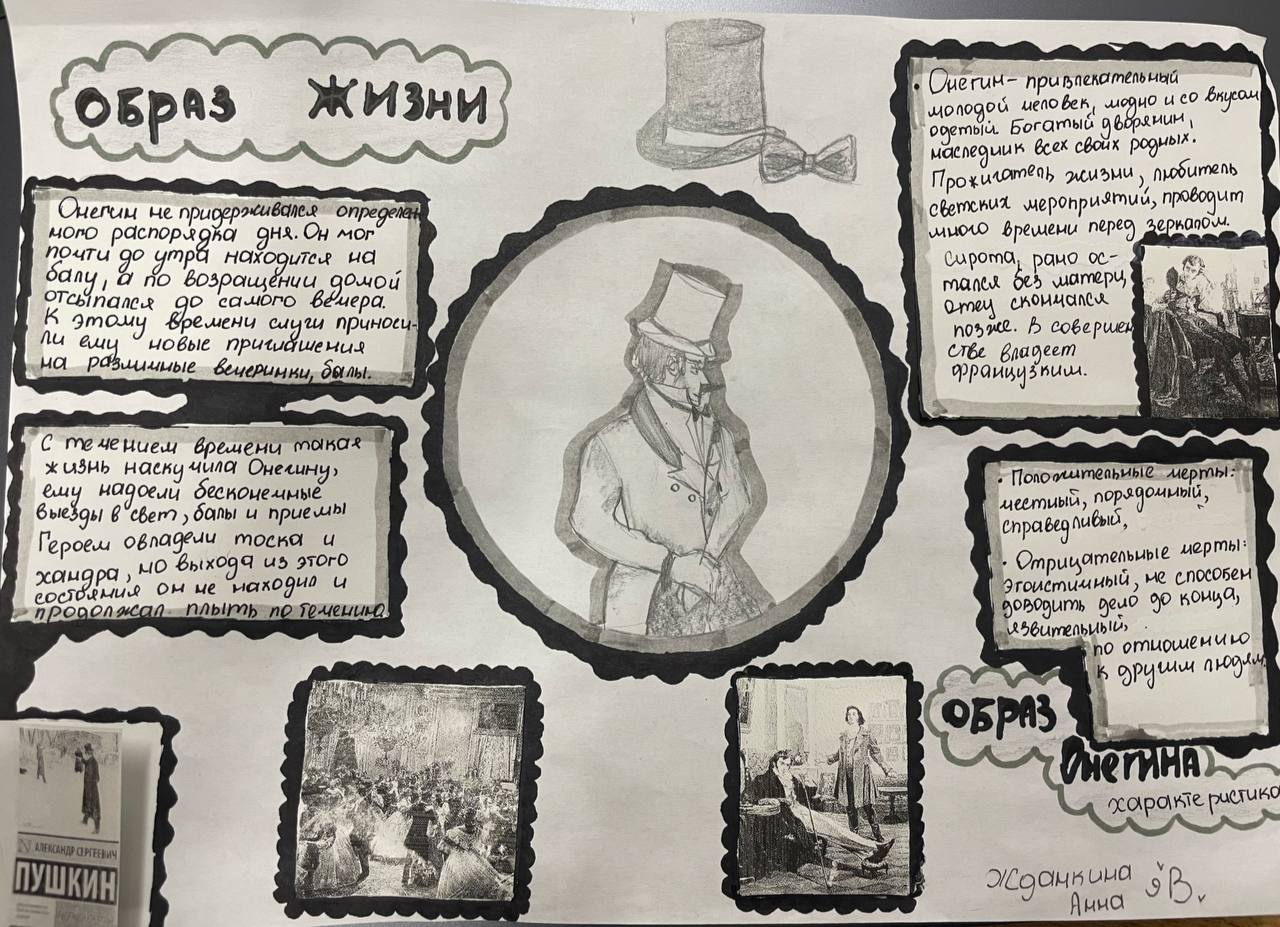 ОБРАЗ ЖИЗНИ
Онегин не придерживался определен
ного распорядка дня. Он мог
почти до утра находится на
балу, а по возращении домой
отсыпался до самого вечера.
К этому времени слуги приноси-
ли ему новые приглашения
на различные вечеринки, балы.
С течением времени такая
жизнь наскучила Онегину,
ему надоели бесконечные
выезды в свет, балы и приемы
Героем овладели тоска и
хандра, но выхода из этого
состояния он не находил и
продолжал плыть по течению.
АЛЕКСАНДР СЕРГЕЕВИЧ
ПУШКИН
• Онегин- привлекательный
молодой человек, модно и со вкусом
одетый. Богатый дворянин,
наследник всех своих родных.
Прожигатель жизни, любитель
светских мероприятий, проводит
много времени перед зеркалом.
Сирота, рано ос-
тался без матери,
отец скончался
позже. В совершен
стве владеет
французким.
• Положительные черты:
честный, порядочный,
справедливый,
• Отрицательные черты:
эгоистичный, не способен
доводить дело до конца,
язвительный,
по отношению
к другим людям
ОБРАЗ
ОНЕГИНА
характеристика
Жданкина
Анна